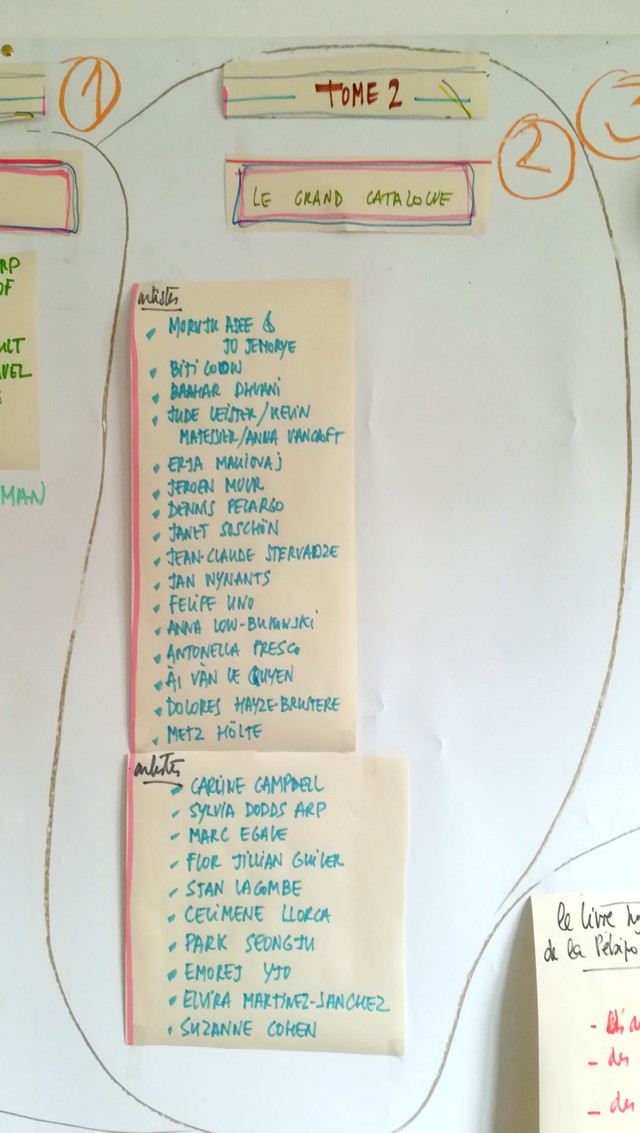 1
TOME 2
2
3
LE GRAND CATALOGUE
RP
OF
ULT
AVEL
MAN
artistes
MORUJU AJEE &
JO JEMORYE
BITI
BAAHAR DHVANI
JUDE LEISTER/KEVIN
MATESSIER/ANNA VANCROFT
ERJA MAKIOVAJ
JEROEN MUUR
DENNIS PELARGO
JANET SOSCHÖN
JEAN-CLAUDE STERVADZE
JAN WYNANTS
FELIPE UNO
ANNA LOW-BUKOWSKI
ANTONELLA PRESCO
ÀI VÀN LE QUYEN
DOLORES HAYZE-BRUTERE
METZ HÖLTE
artistes
CARLINE CAMPBELL
SYLVIA DODDS ARP
MARC EGALE
FLOR JILLIAN GUILER
STAN LACOMBE
CELIMENE LLORCA
PARK SEONGJU
EMOREJ YJO
ELVIRA MARTINEZ-SANCHEZ
SUZANNE COHEN
le livre
de la
- des
- des